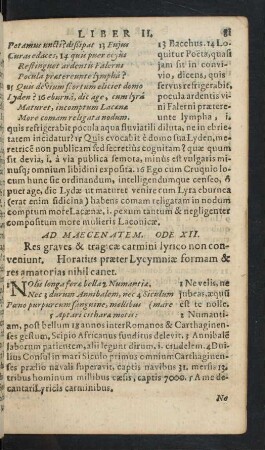 LIBER II. 81
Potamus uncti? dissipat 13 Euius
Curas edaces. 14 quis puer ocyus
Restinguet ardentis Falerni
Pocula prætereunte lympha?
15 Quis devium scortum eliciet domo
Lyden? 16 eburnâ, dic age, cum lyrâ
Maturet, incomptum Lacænæ
More comam religata nodum.
13 Bacchus. 14 Lo-
quitur Poëta, quasi
jam sit in convi-
vio, dicens, quis
servus refrigerabit
pocula ardentis vi-
ni Falerni præter-
eunte lympha, i.
quis refrigerabit pocula aqua fluviatili diluta, ne in ebrieta-
tem incidatur? 15 Quis evocabit è domo sua Lyden, me-
retricem non publicam sed secretius cognitam? quæ quum
sit devia, i. à via publica semota, minus est vulgaris minus-
usq; omnium libidini exposita. 16 Ego cum Cruquio lo-
cum hunc sic ordinandum, intelligendumque censeo, ô
puer age, dic Lydæ ut maturet venire cum Lyra eburnea
(erat enim fidicina) habens comam religatam in nodum
comptum more Lacænæ, i. pexum tantum & negligenter
compositum more mulieris Laconicæ.
AD MAECENATEM. ODE XII.
Res graves & tragicæ carmini lyrico non con-
veniunt. Horatius præter Lycymniæ formam &
res amatorias nihil canet.
Nolis longa feræ bella 2 Numantiæ,
Nec 3 durum Annibalem, nec 4 Siculum
Pœno purpureum sanguine, mollibus (mare
5 Aptari citharæ modis:
1 Nevelis, ne
jubeas, æquû
est te nolle.
2 Numanti-
am, post bellum 18 annos inter Romanos & Carthaginen-
ses gestum, Scipio Africanus funditus delevit. 3 Annibalē
laborum patientem, alii legunt dirum. i. crudelem. 4 Dui-
lius Consul in mari Siculo primus omnium Carthaginen-
ses prælio navali superavit, captis navibus 31. mersis 13.
tribus hominum millibus cæsis, captis 7000. 5 A me de-
cantari Lyricis carminibus.
Ne